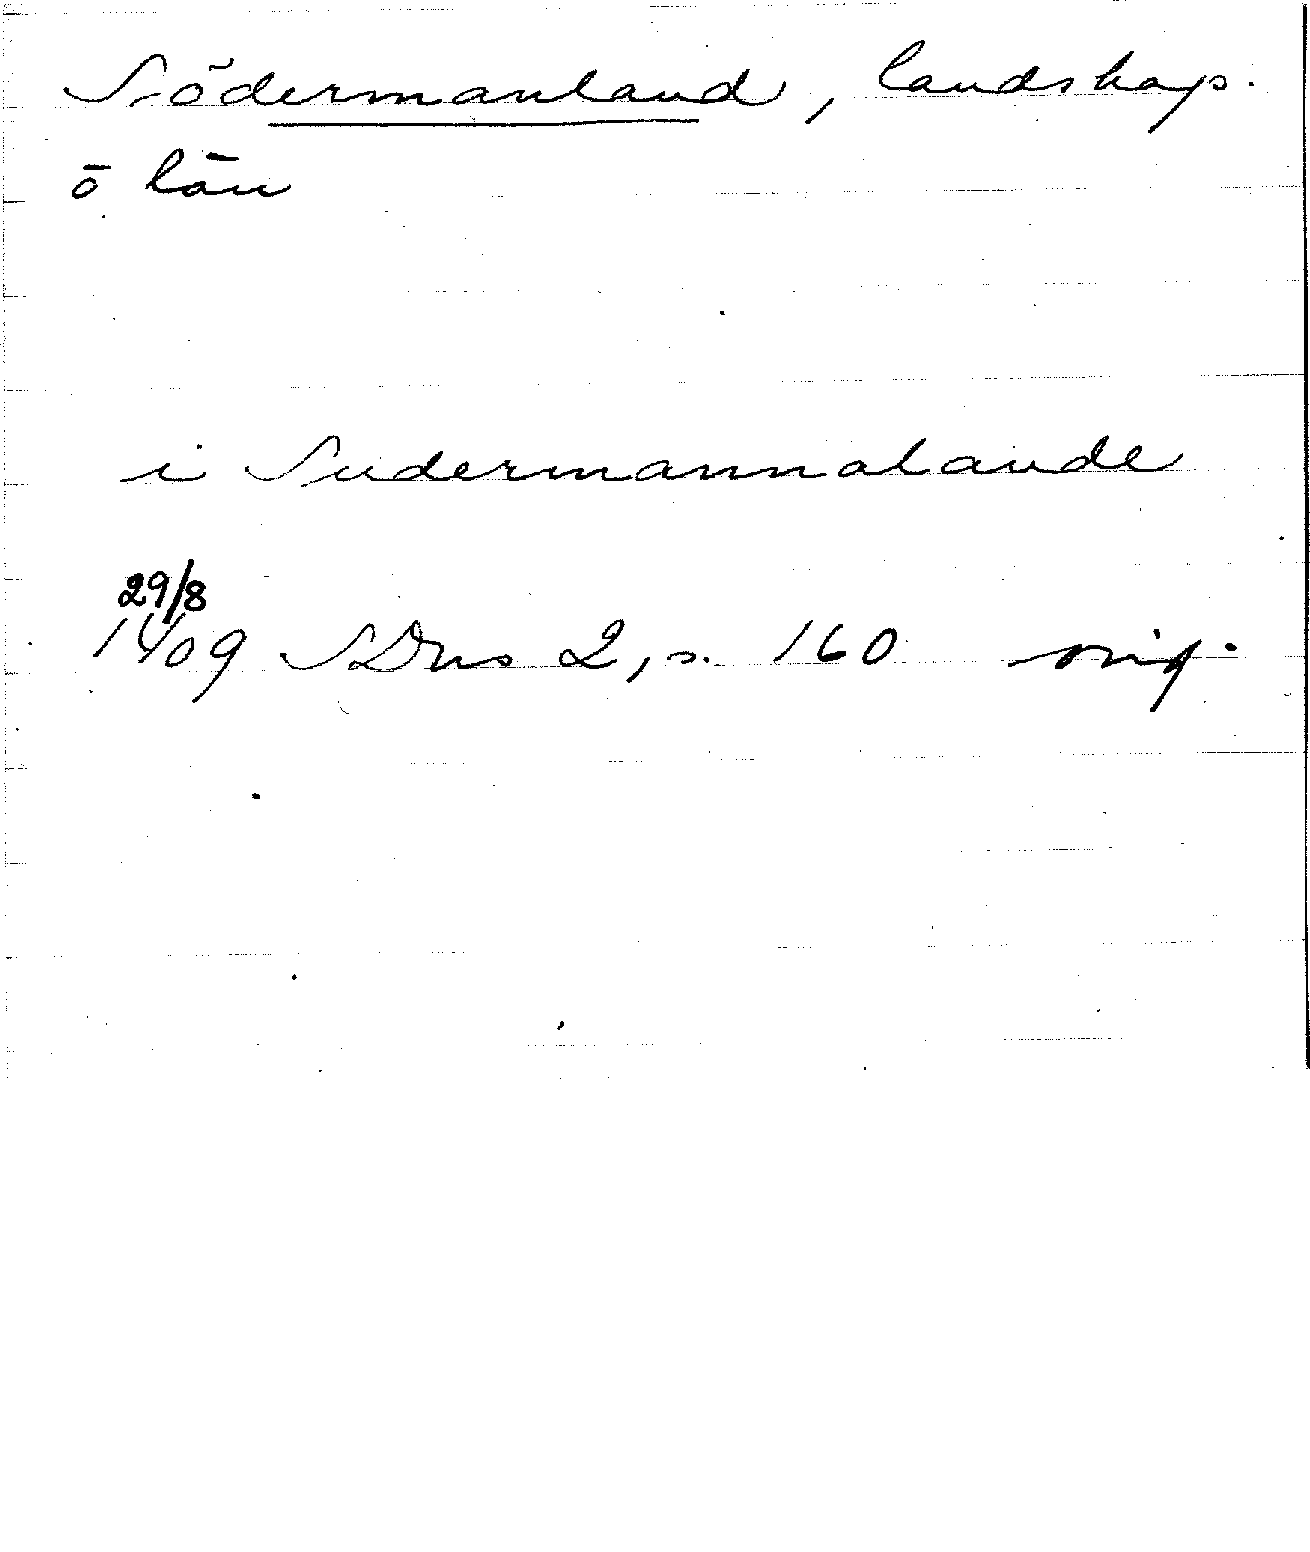 Södermanland, landskap.
o län
i Sudermannalande
29/8
1409 SDns 2, s. 160 orig.